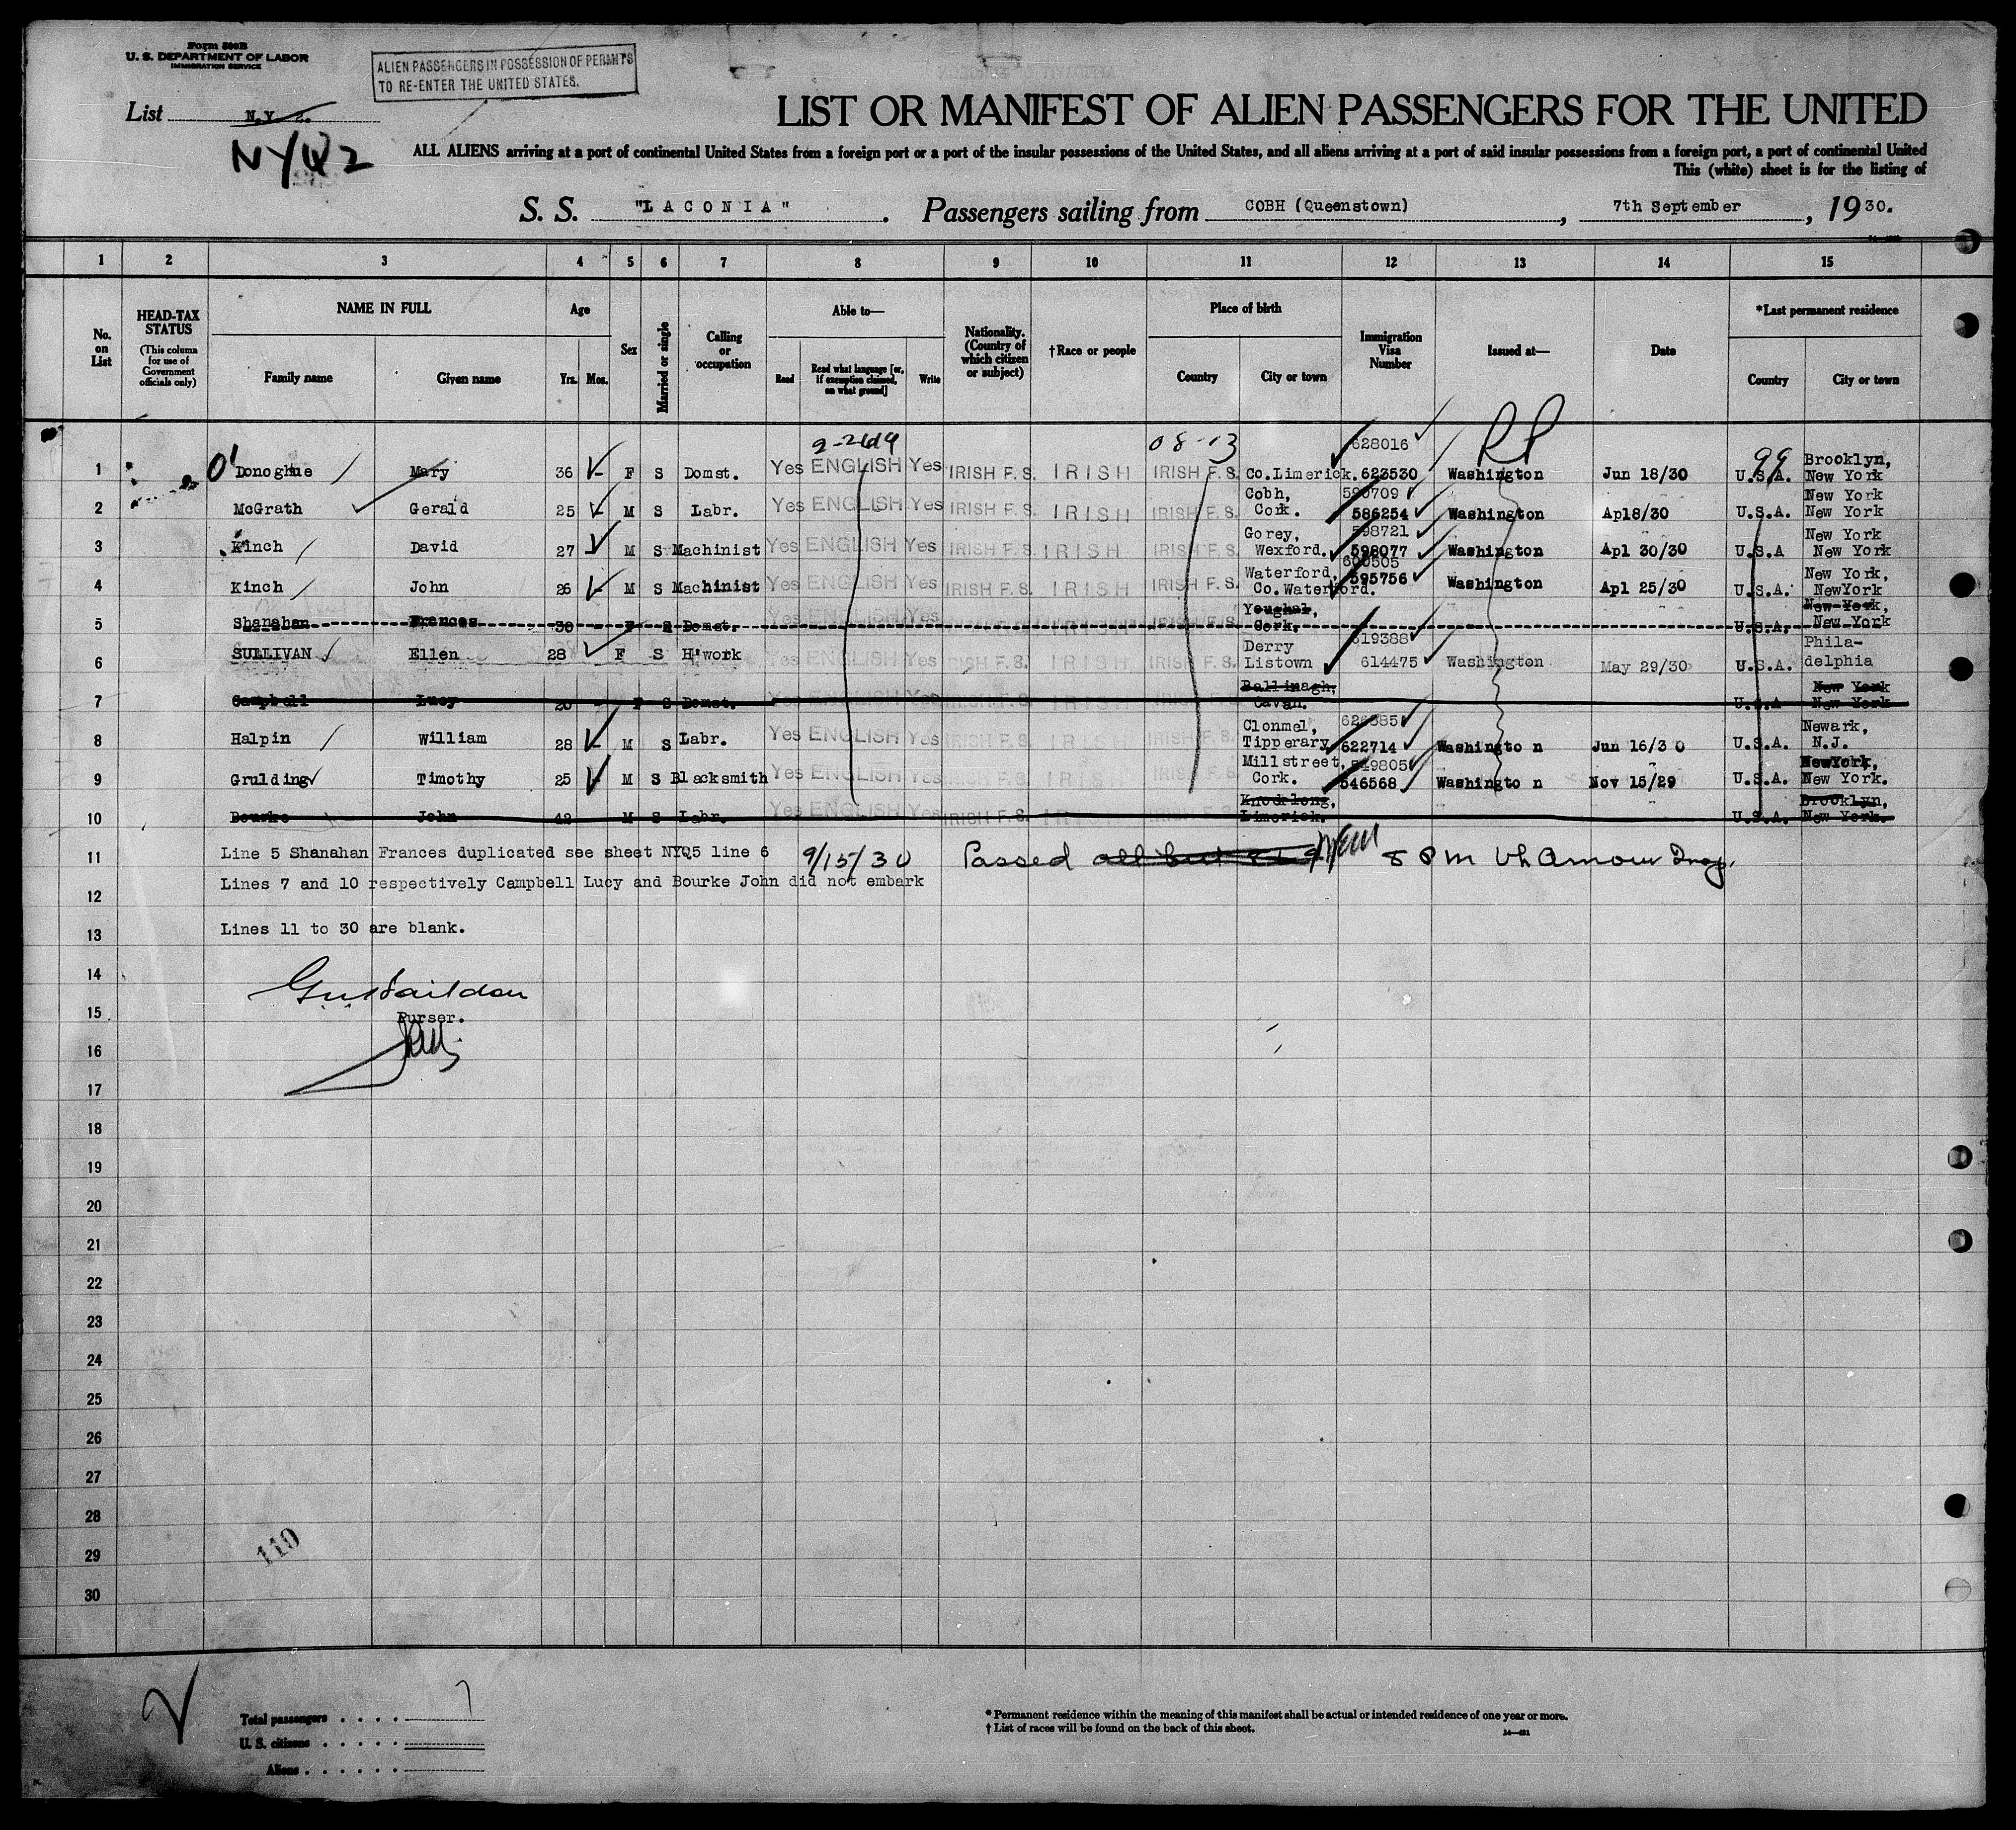 Form 500B
U. S. DEPARTMENT OF LABOR
IMMIGRATION SERVICE
ALIEN PASSENGERS IN POSSESSION OF PERMITS
TO RE-ENTER THE UNITED STATES.
List N.Y.
NYQ2
LIST OR MANIFEST OF ALIEN PASSENGERS FOR THE UNITED
ALL ALIENS arriving at a port of continental United States from a foreign port or a port of the insular possessions of the United States, and all aliens arriving at a port of said insular possessions from a foreign port, a port of continental United
This (white) sheet is for the listing of
S. S. "LACONIA". Passengers sailing from COBH (Queenstown), 7th September, 1930.
1 2 3 4 5 6 7 8 9 10 11 12 13 14 15
No. on List
HEAD-TAX STATUS (This column for use of Government officials only)
NAME IN FULL
Family name Given name
Age
Yrs. Mos.
Sex
Married or single
Calling or occupation
Able to—
Read Read what language [or, if exemption claimed, on what ground] Write
Nationality. (Country of which citizen or subject)
†Race or people
Place of birth
Country City or town
Immigration Visa Number
Issued at—
Date
*Last permanent residence
Country City or town
08-13 628016 RP 99
1 O' Donoghue Mary 36 - F S Domst. Yes ENGLISH Yes IRISH F.S. IRISH IRISH F.S. Co.Limerick. 623530 Washington Jun 18/30 U.S.A. Brooklyn, New York
2 McGrath Gerald 25 - M S Labr. Yes ENGLISH Yes IRISH F.S. IRISH IRISH F.S. Cobh, Cork. 590709 586254 Washington Apl8/30 U.S.A. New York New York
3 Kinch David 27 M S Machinist Yes ENGLISH Yes IRISH F.S. IRISH IRISH F.S. Gorey, Wexford. 598721 598077 Washington Apl 30/30 U.S.A New York New York
4 Kinch John 26 - M S Machinist Yes ENGLISH Yes IRISH F.S. IRISH IRISH F.S. Waterford, Co.Waterford. 600505 595756 Washington Apl 25/30 U.S.A. New York, NewYork
5 Shanahan Frances 30 - F S Domst. Yes ENGLISH Yes Youghal, Cork. U.S.A. New York, New York
6 SULLIVAN Ellen 28 F S H'work Yes ENGLISH Yes IRISH F.S. IRISH IRISH F.S. Derry Listown 619388 614475 Washington May 29/30 U.S.A. Phila- delphia
7 Campbell Lucy 20 - F S Domst. Yes ENGLISH Yes IRISH F.S. IRISH IRISH F.S. Ballinagh, Cavan. U.S.A New York New York
8 Halpin William 28 - M S Labr. Yes ENGLISH Yes IRISH F.S. IRISH IRISH F.S. Clonmel, Tipperary 622714 Washingto n Jun 16/3 0 U.S.A. Newark, N.J.
9 Grulding Timothy 25 - M S Blacksmith Yes ENGLISH Yes IRISH F.S. IRISH IRISH F.S. Millstreet, Cork. 549805 546568 Washingto n Nov 15/29 U.S.A. NewYork, New York.
10 Bourke John 42 M S Labr. Yes ENGLISH Yes IRISH F.S. Knocklong, Limerick. U.S.A. Brooklyn, New York.
11 Line 5 Shanahan Frances duplicated see sheet NYQ5 line 6 9/15/30 Passed
12 Lines 7 and 10 respectively Campbell Lucy and Bourke John did not embark
13 Lines 11 to 30 are blank.
14
15 Purser.
16
17
18
19
20
21
22
23
24
25
26
27
28
29
30
110
Total passengers . . . . 7
U. S. citizens . . . . .
Aliens . . . . . .
* Permanent residence within the meaning of this manifest shall be actual or intended residence of one year or more.
† List of races will be found on the back of this sheet.
14—431